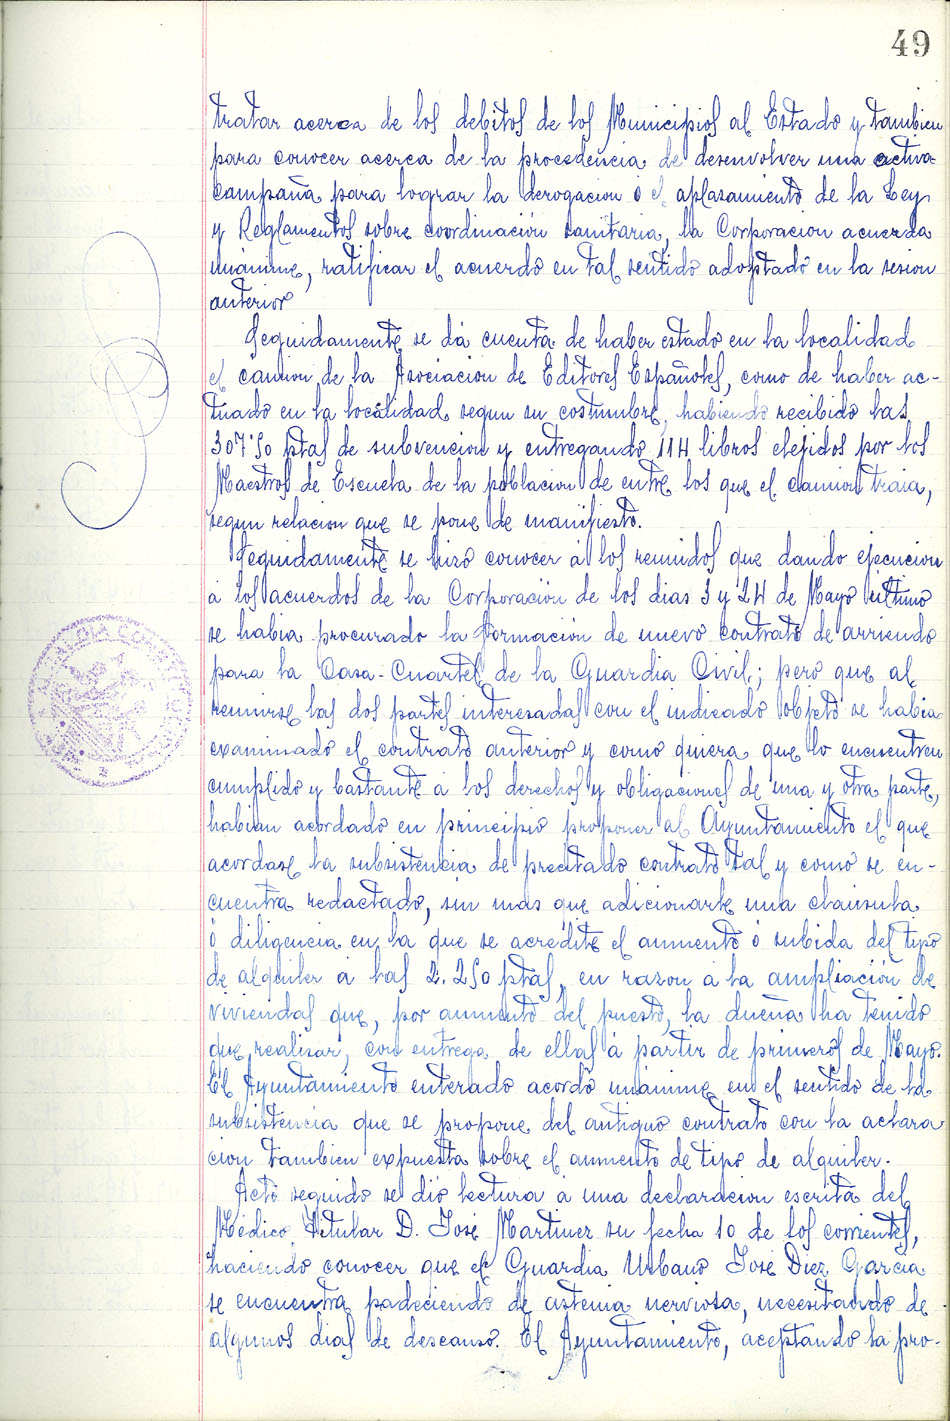 49
tratar acerca de los debitos de los Municipios al Estado y tambien
para conocer acerca de la procedencia de desenvolver una activa
campaña para lograr la derogacion ó el aplasamiento de la Ley
y Reglamentos sobre coordinación sanitaria, la Corporacion acuerda
unánime, ratificar el acuerdo en tal sentido adoptado en la sesion
anterior
Seguidamente se dá cuenta de haber estado en la localidad
el camion de la Asociacion de Editores Españoles, como de haber ac-
tuado en la localidad segun su costumbre, habiendo recibido las
307'50 ptas de subvencion y entregando 114 libros elejidos por los
Maestros de Escuela de la poblacion de entre los que el camion traia,
segun relacion que se pone de manifiesto.
Seguidamente se hizo conocer á los reunidos que dando ejecucion
á los acuerdos de la Corporación de los dias 3 y 24 de Mayo último
se habia procurado la formación de nuevo contrato de arriendo
para la Casa-Cuartel de la Guardia Civil; pero que al
reunirse las dos partes interesadas con el indicado objeto se habia
examinado el contrato anterior y como quiera que lo encuentren
cumplido y bastante á los derechos y obligaciones de una y otra parte,
habian acordado en principio proponer al Ayuntamiento el que
acordase la subsistencia de precitado contrato tal y como se en-
cuentra redactado, sin mas que adicionarle una cláusula
ó diligencia en la que se acredite el aumento ó subida del tipo
de alquiler á las 2.250 ptas, en razon á la ampliación de
viviendas que, por aumento del puesto, la dueña ha tenido
que realizar, con entrega de ellas á partir de primeros de Mayo.
El Ayuntamiento enterado acordó unánime en el sentido de la
subsistencia que se propone del antiguo contrato con la aclara
cion tambien expuesta sobre el aumento de tipo de alquiler.
Acto seguido se dió lectura á una declaracion escrita del
Médico Titular D. José Martinez su fecha 10 de los corrientes,
haciendo conocer que el Guardia Urbano José Diez Garcia
se encuentra padeciendo de astenia nerviosa, necesitando de
algunos dias de descanso. El Ayuntamiento, aceptando la pro-